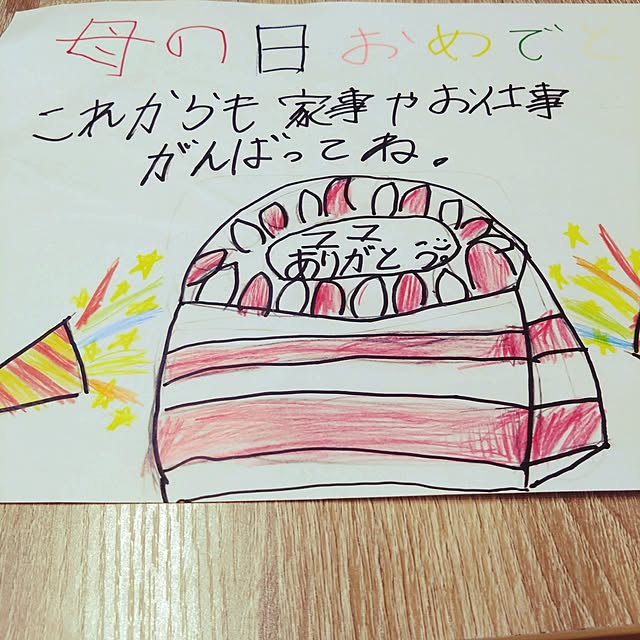 母の日おめでと
これからも家事やお仕事
がんばってね。
ママ
ありがとう。